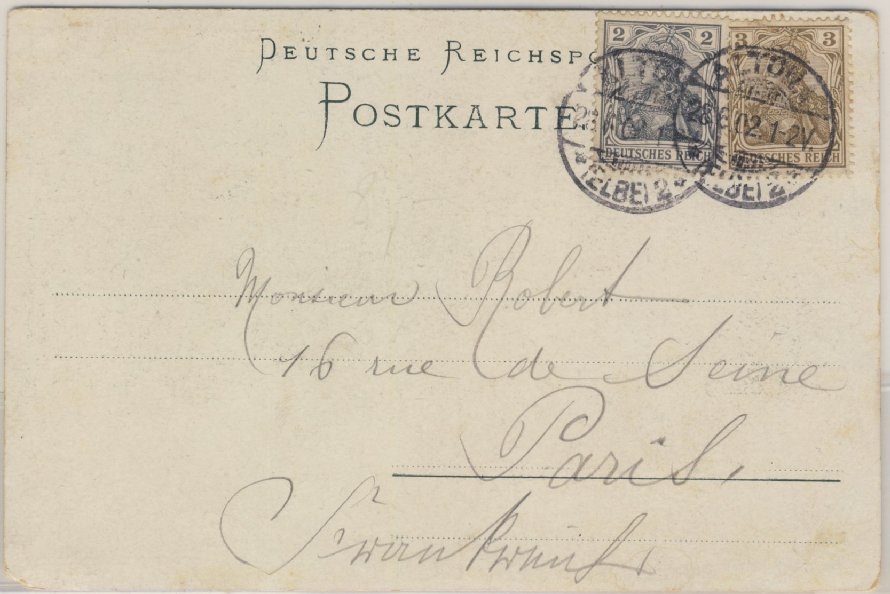 DEUTSCHE REICHSPO
POSTKARTE
2 2
DEUTSCHES REICH
3 3
DEUTSCHES REICH
(ELBE) 2
02.1-2V.
Monsieur Robert
16 rue de Seine
Paris,
Frankreich